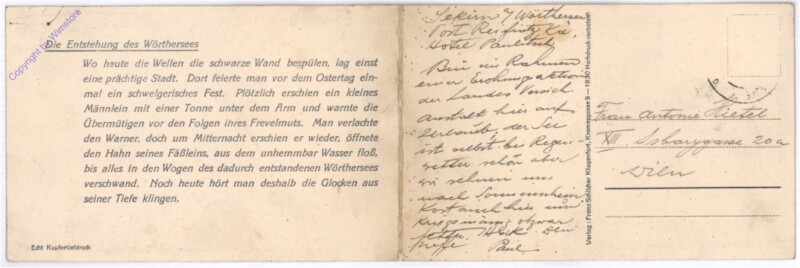 Die Entstehung des Wörthersees
Wo heute die Wellen die schwarze Wand bespülen, lag einst
eine prächtige Stadt. Dort feierte man vor dem Ostertag ein-
mal ein schwelgerisches Fest. Plötzlich erschien ein kleines
Männlein mit einer Tonne unter dem Arm und warnte die
Übermütigen vor den Folgen ihres Frevelmuts. Man verlachte
den Warner, doch um Mitternacht erschien er wieder, öffnete
den Hahn seines Fäßleins, aus dem unhemmbar Wasser floß,
bis alles in den Wogen des dadurch entstandenen Wörthersees
verschwand. Noch heute hört man deshalb die Glocken aus
seiner Tiefe klingen.
Echt Kupfertiefdruck
Copyright by Wimstore
Sekirn a/ Wörthersee
Post Reifnitz
Hotel
Bin im Rahmen
einer
der Landes
anstalt hier auf
Urlaub; der See
ist selbst bei Regen-
wetter schön aber
wir sehnen uns
nach Sonnenschein
Kost auch hier
kriegsmässig
Dein
Paul
Verlag: Franz Schilcher, Klagenfurt, — 1930 Nachdruck verboten
Frau Antonie
XIII. 20a
Wien